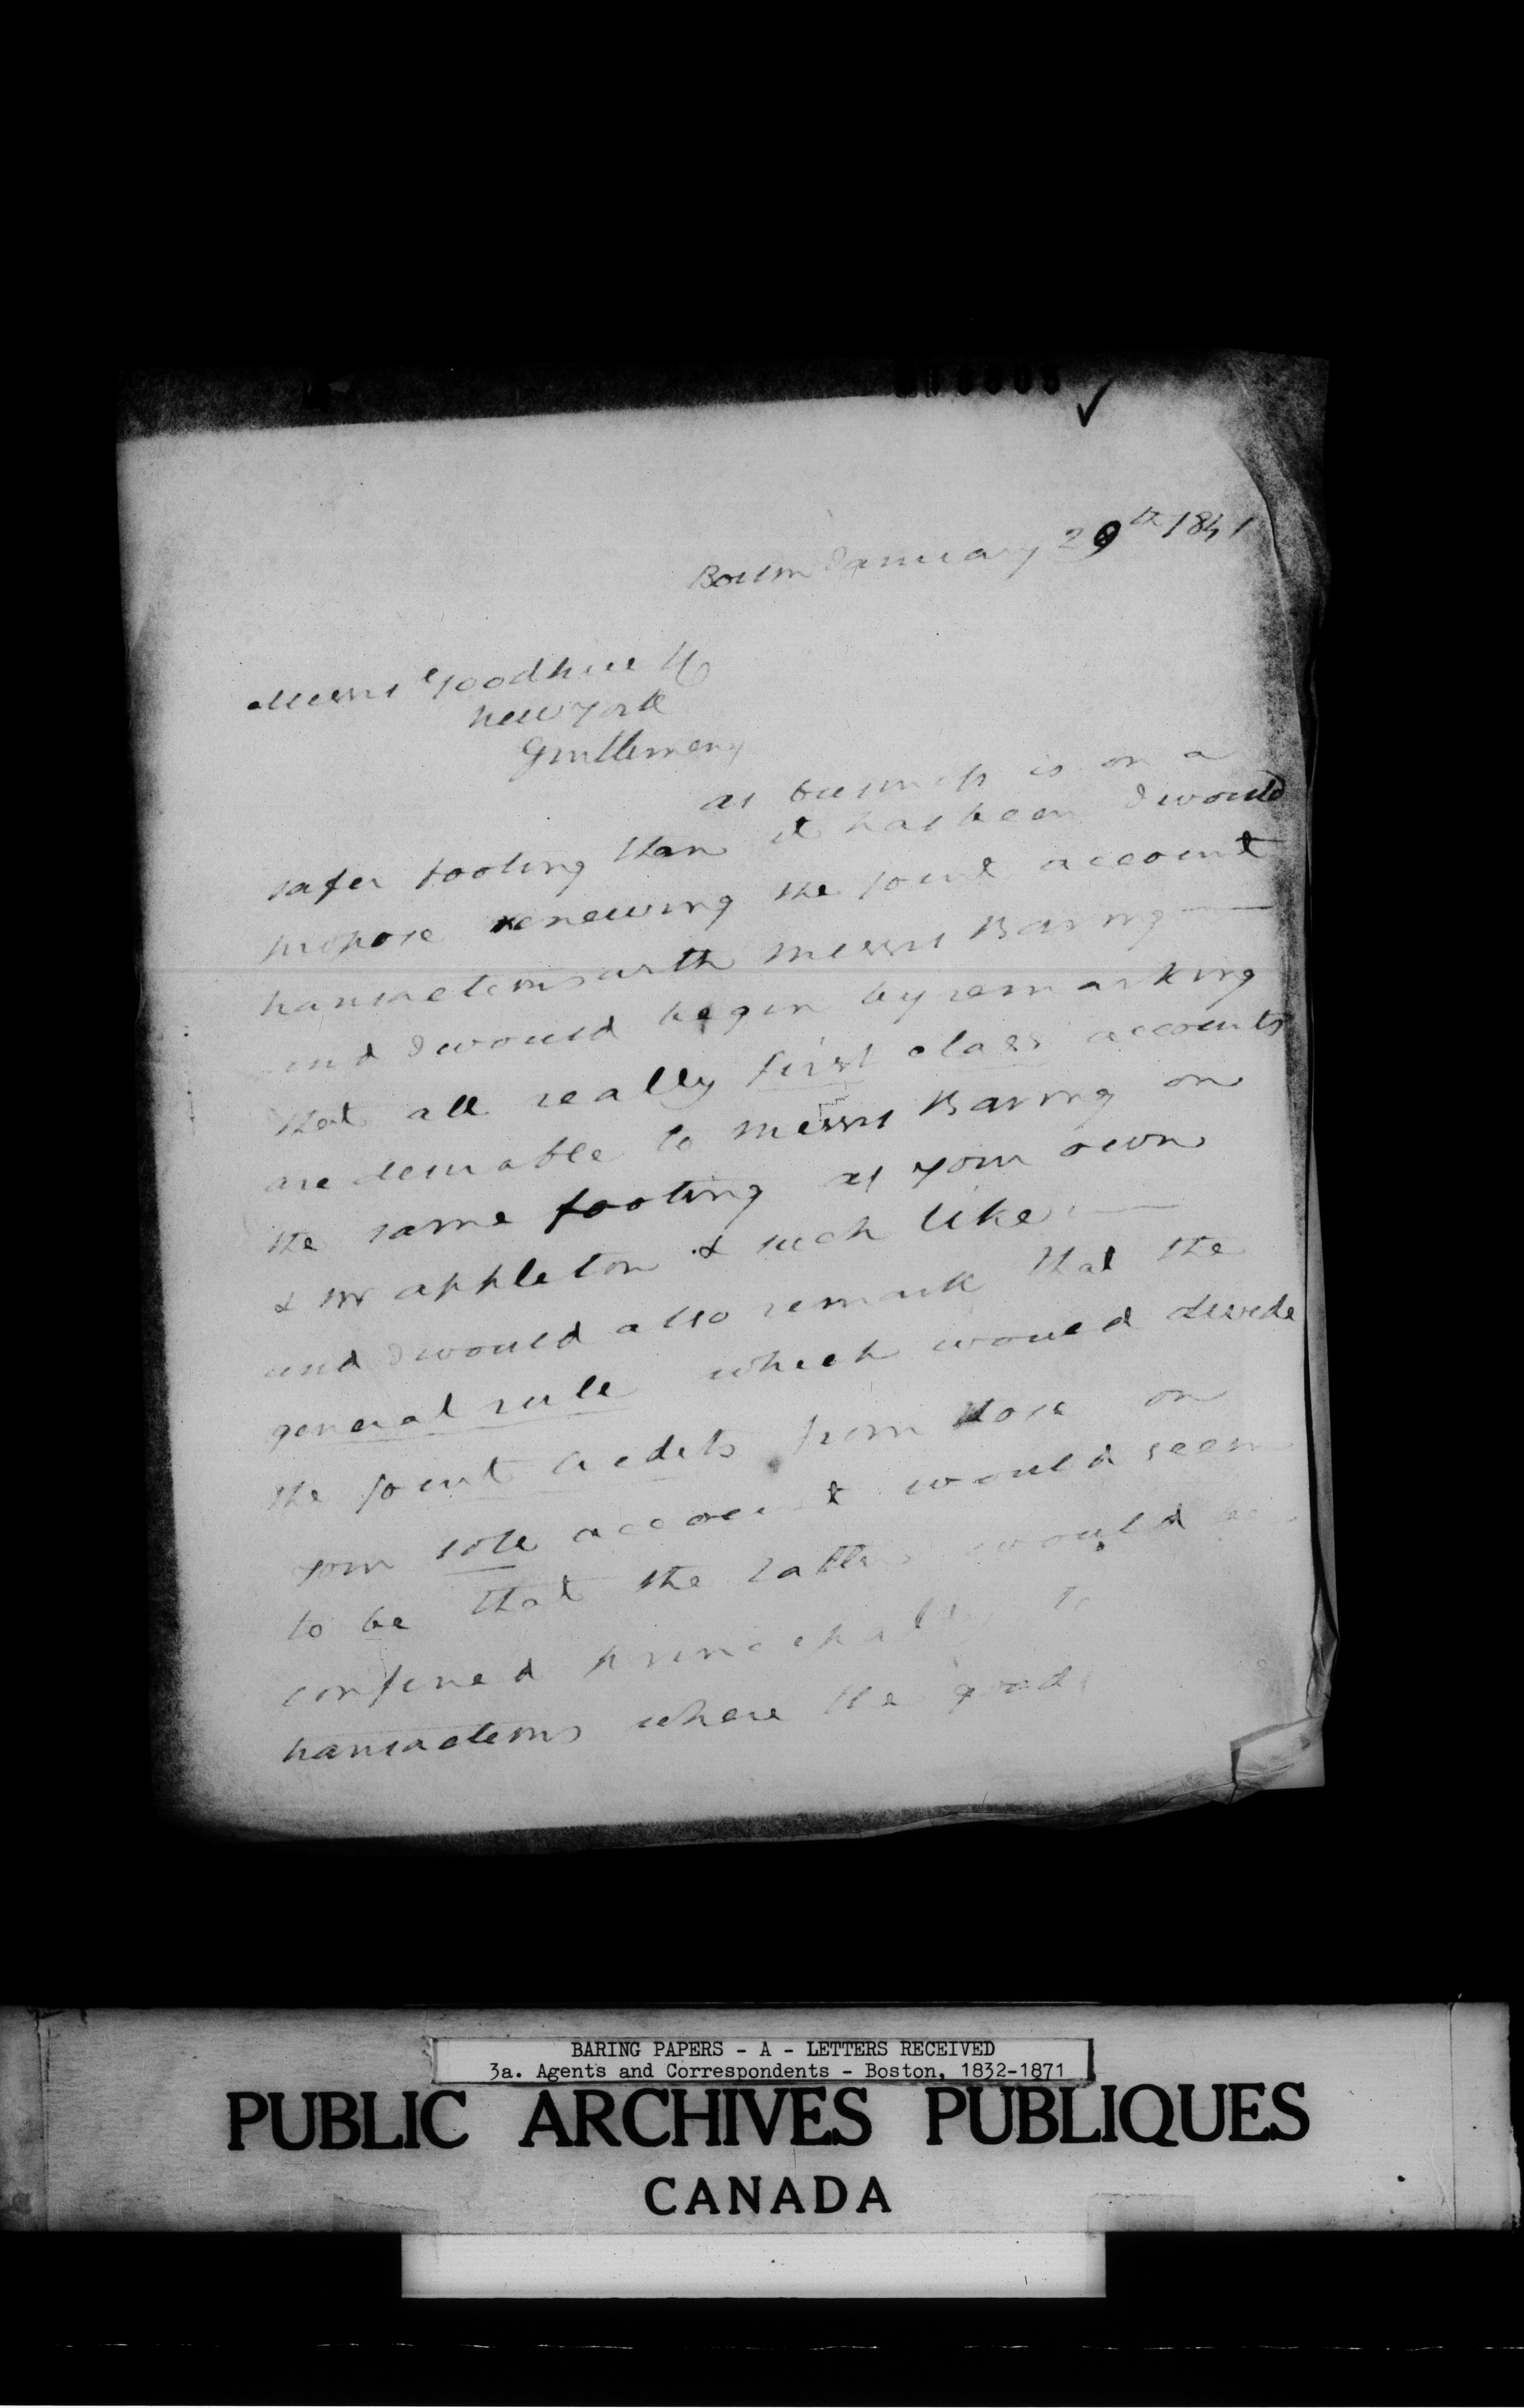 Boston January 29th 1841
Messrs Goodhue & Co
New York
Gentlemen,
as business is on a
safer footing than it has been I would
propose renewing the joint account
transactions with Messrs Baring —
and I would begin by remarking
that all really first class accounts
are desirable to Messrs Baring on
the same footing as your own
& Mr Appleton & such like —
and I would also remark that the
general rule which would divide
the joint credits from those on
your sole account would seem
to be that the latter would be
confined principally to
transactions where the goods
BARING PAPERS - A - LETTERS RECEIVED
3a. Agents and Correspondents - Boston, 1832-1871
PUBLIC ARCHIVES PUBLIQUES
CANADA